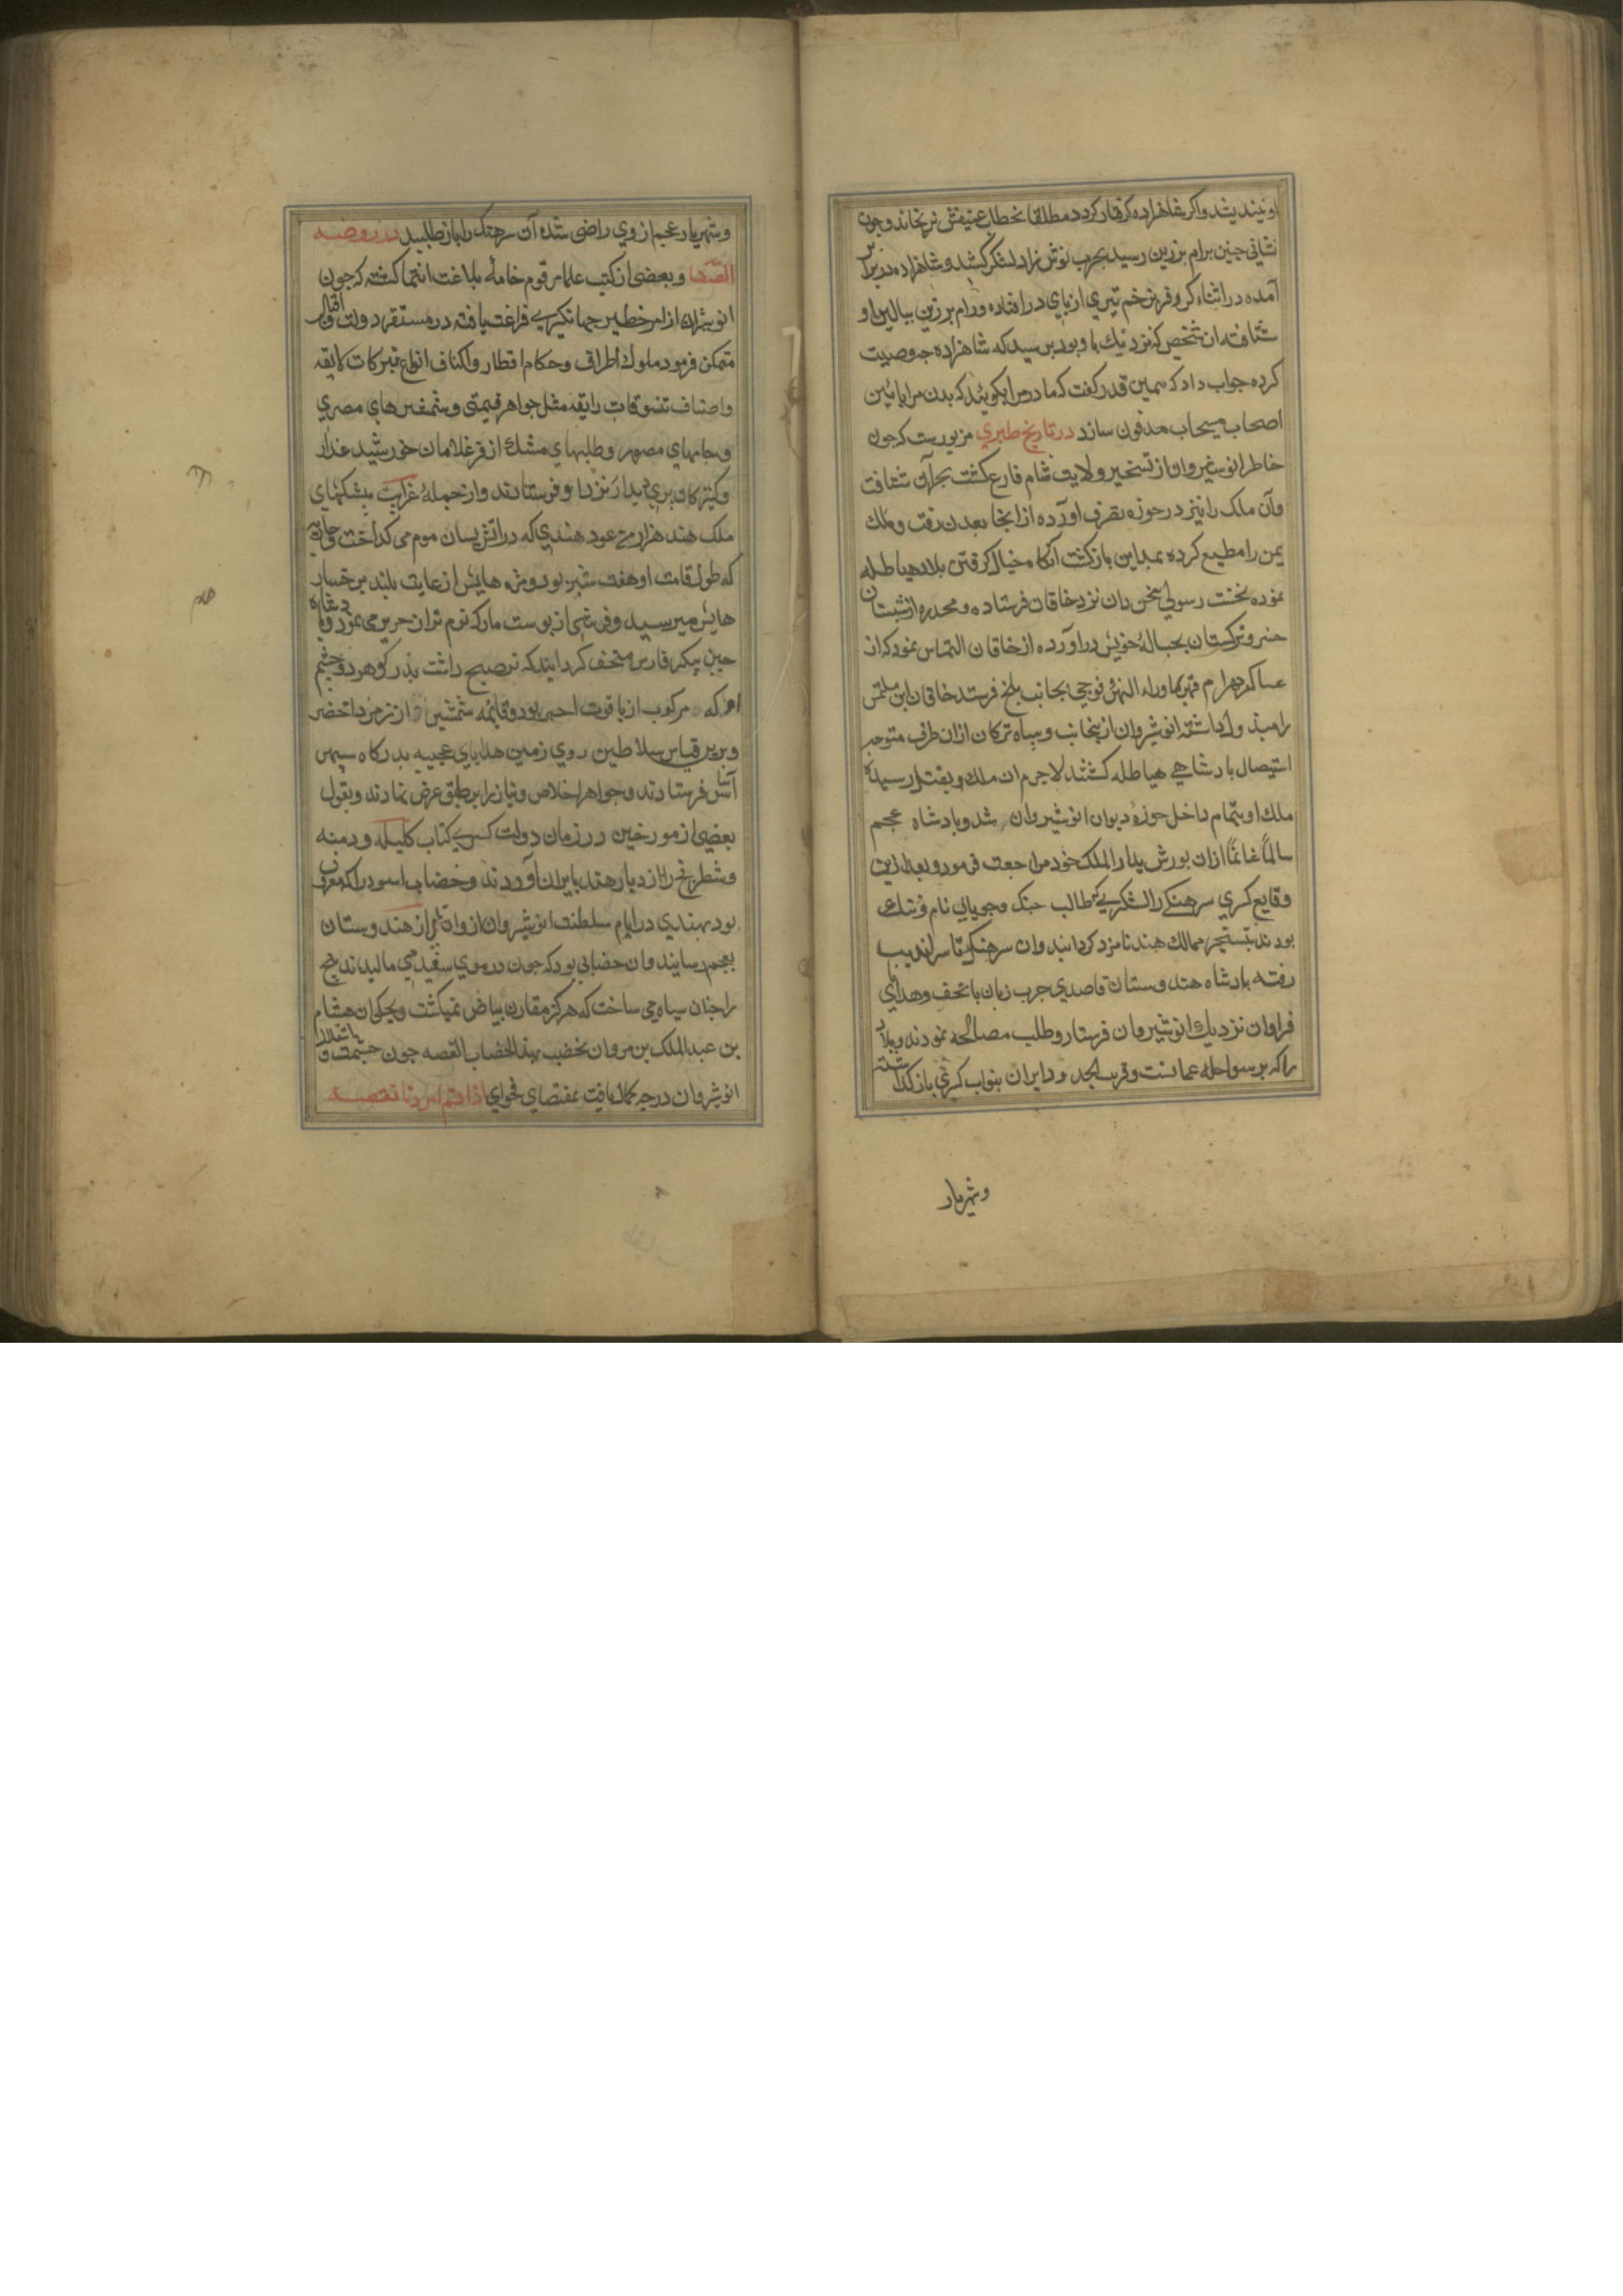 او نیندیشد واکر شاهزاده کرفتار کردد مطلقا بخطاب عنیفش نرنجاند وجون
نشانی جنین برام برزین رسید بحرب نوش زاد لشکر کشید وشاهزاده دربرابر
آمده در اثناء کر وفر بزخم تیری از پای در افتاده ورام برزین ببالین او
شتافته ازان شخص که نزدیك باو بود پرسید که شاهزاده جه وصیت
کرده جواب داد که همین قدر کفت که مادر مرا بکویند که بدن مرا بآئین
اصحاب مسیحا مدفون سازد در تاریخ طبری مزبورست که جون
خاطر انوشیروان از تسخیر ولایت شام فارغ کشت بجزآن شتافت
وآن ملك را نیز در حوزه تصرف آورده از انجا بعدن رفت وملك
یمن را مطیع کرده بمداین بازکشت آنکاه خیال کرفتن بلاد هیاطله
نموده نخست رسولی سخن دان نزد خاقان فرستاده ومخدره از شبستان
خسرو ترکستان بحباله خویش در آورده از خاقان التماس نمود که از
عساکر بهرام قهر بماوراء النهر فوجی بجانب بلخ فرستد خاقان این ملتمس
را مبذول داشته انوشیروان ازینجانب وسپاه ترکان ازان طرف متوجه
استیصال پادشاهی هیاطله کشتند لاجرم آن ملك بقتل رسیده
ملك او بتمام داخل حوزه دیوان انوشیروان شد وپادشاه عجم
سالمًا غانمًا ازان یورش بدار الملك خود مراجعت فرمود وبعد ازین
وقایع کسری سرهنکی را لشکری که طالب جنك وجویای نام وننك
بودند بتسخیر ممالك هند نامزد کردانید وآن سرهنك تا سراندیب
رفته پادشاه هندوستان قاصدی جرب زبان با تحف وهدایای
فراوان نزدیك انوشیروان فرستاد وطلب مصالحه نمودند وبلاد
را که بر سواحل عمانست وقریب بحدود ایران بنواب کسری بازکذاشته
وشهریار
وشهریار عجم از وی راضی شده آن سرهنك را باز طلبید در روضه
الصفا وبعضی از کتب علما مرقوم خامه بلاغت انتما کشته که جون
انوشیروان از امر خطیر جهانکیری فراغت یافته در مستقر دولت واقبال
متمکن فرمود ملوك اطراف وحکام اقطار واکناف انواع تبرکات لایقه
واصناف تنسوقات رایقه مثل جواهر قیمتی وشمشیرهای مصری
وجامهای مصور وطلبهای مشك اذفر وغلامان خورشید عذار
وکنیزکان پری دیدار نزد او فرستادند واز جمله غرایب پیشکشهای
ملك هند هزار من عود هندی که در آتش بسان موم می کداخت وجاریه
که طول قامت او هفت شبر بود ومژه هایش از غایت بلندی برخسار
هایش میرسید وفرشی از پوست مار که نرم تر از حریر می نمود وپادشاه
چین پیکر فارس متحف کردانید که ترصیع داشت بدر وکوهر ودو چشم
او که مرکوب از یاقوت احمر بود وقایمه شمشیر از زمرد اخضر
وبرین قیاس سلاطین روی زمین هدایای عجیبه بدرکاه سپهر
آسا فرستادند وجواهر اخلاص ونیاز را بر طبق عرض نهادند وبقول
بعضی از مورخین در زمان دولت کسری کتاب کلیله ودمنه
وشطرنج را از دیار هند بایران آوردند وخضاب اسود را که معروف
بود بهندی در ایام سلطنت انوشیروان از هندوستان
بعجم رسانیدند وآن خضابی بود که جون در موی سفید می مالیدند بیخ
را جنان سیاه می ساخت که هرکز مقارن بیاض نمیکشت وبجکان هشام
بن عبد الملك بن مروان تخضب بهذا الخضاب القصه جون حشمت واستقلال
انوشیروان درجه کمال یافت بمقتضای فحوای اذا تم امر دنا نقصه